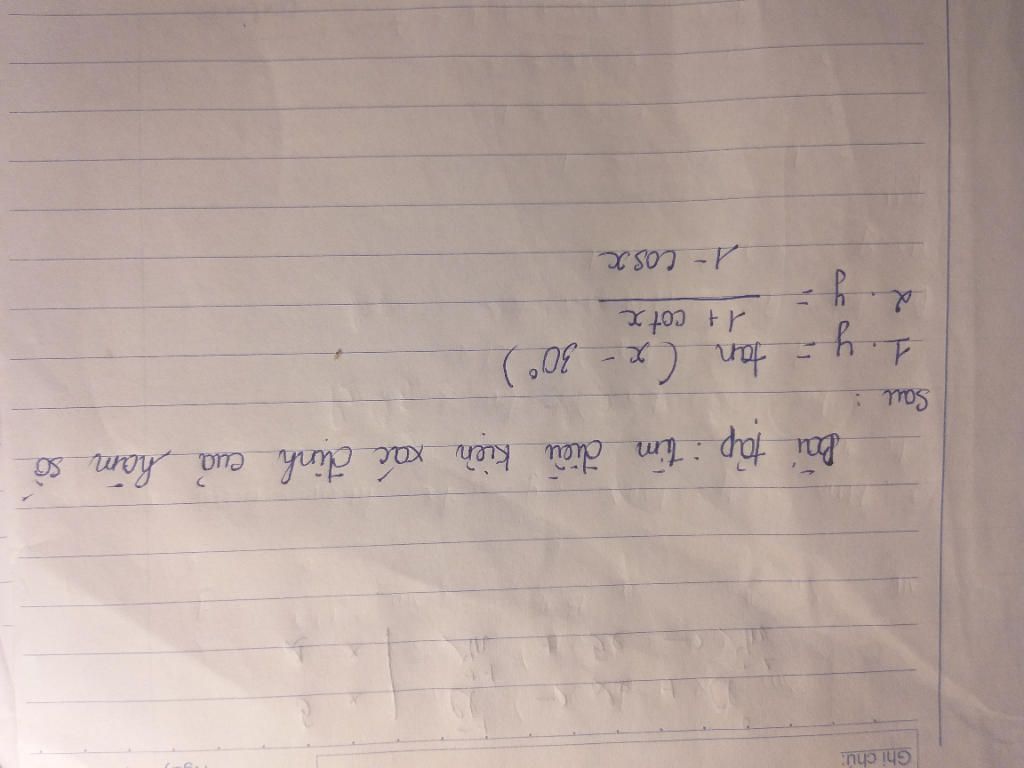 Ghi chú:
Bài tập: tìm điều kiện xác định của hàm số
sau:
1. y = tan (x - 30°)
2. y = \frac{1 + cotx}{1 - cosx}